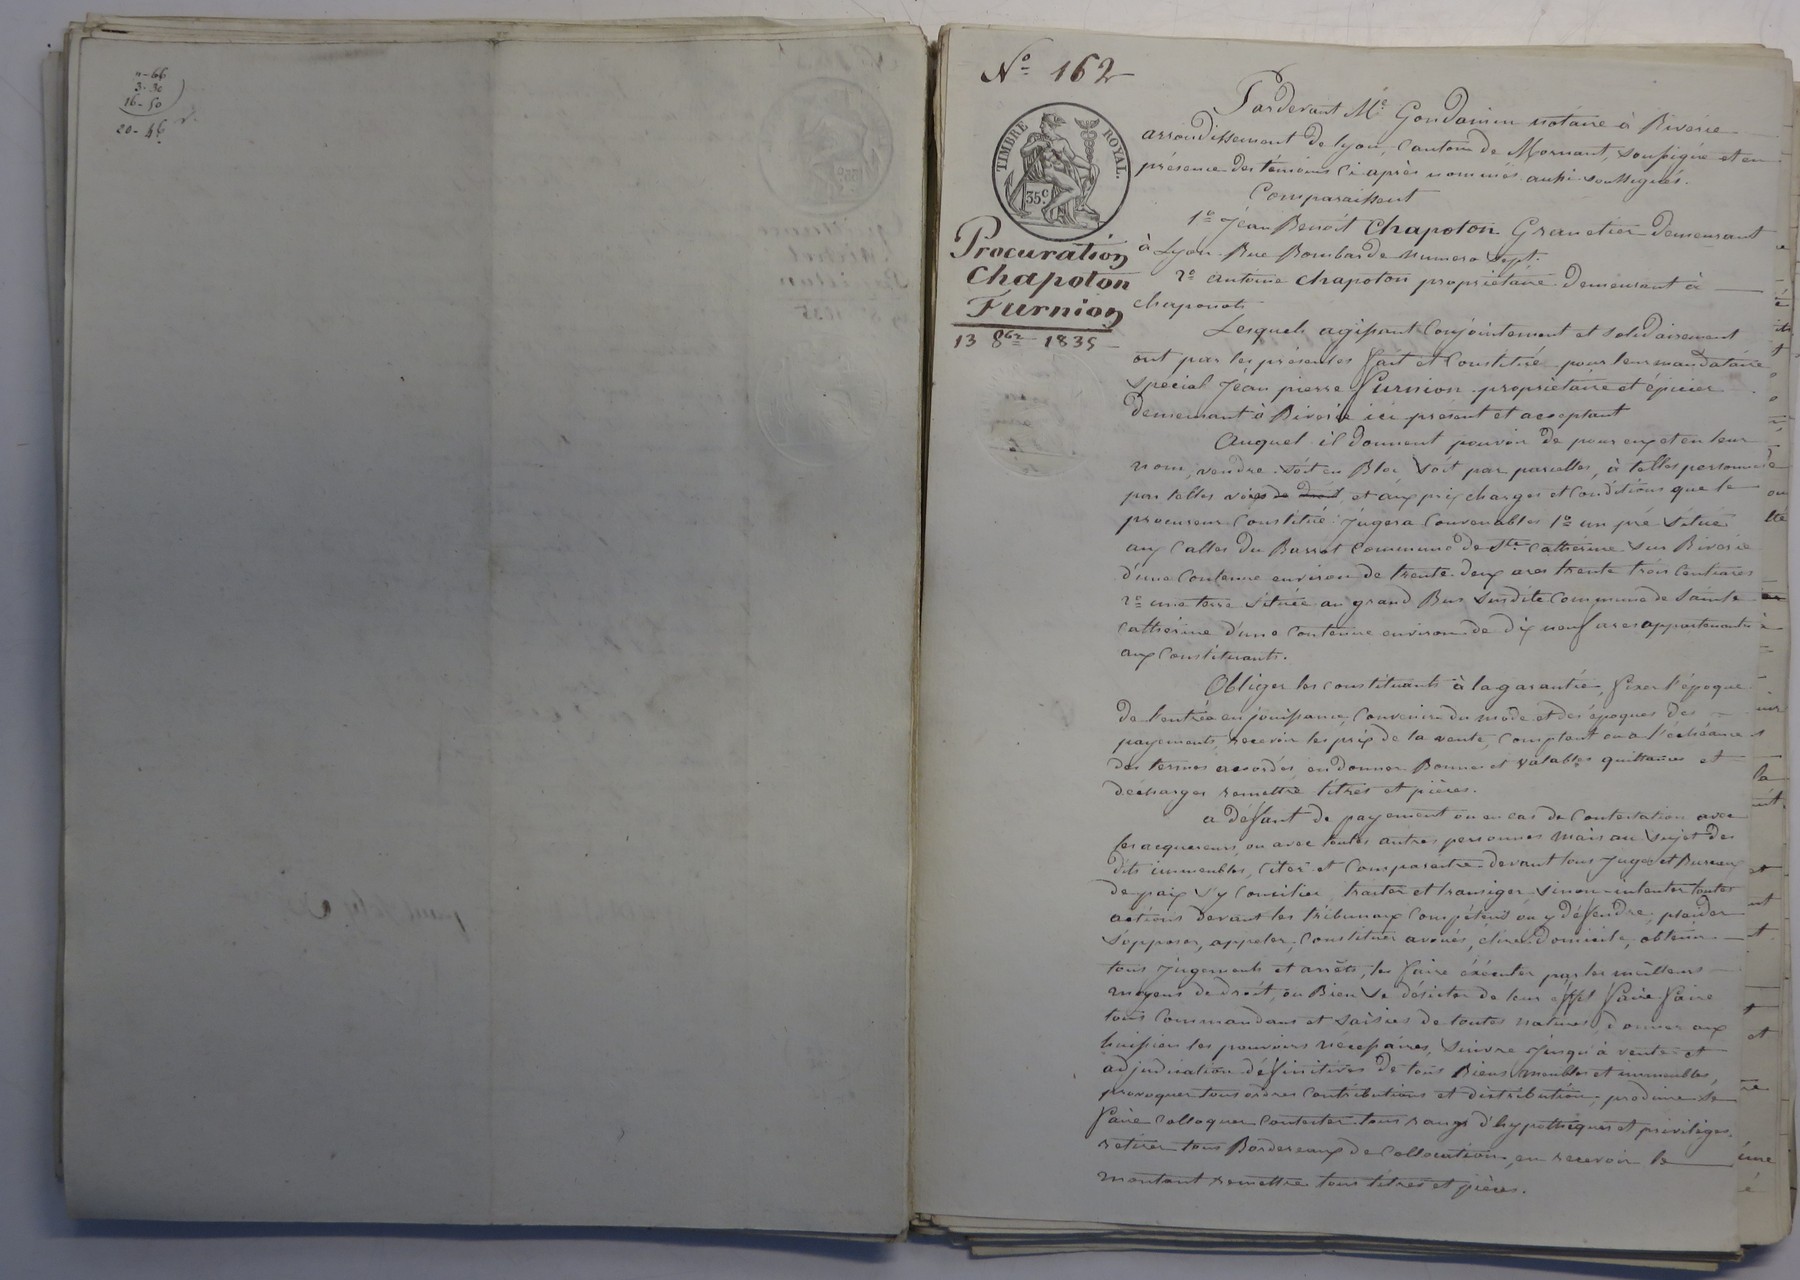 4-66
3-30
16-50
20-46
Nº 162
TIMBRE ROYAL.
35c
Procuration
Chapoton
Furnion
13 8bre 1835
Pardevant Me Gondamin notaire à Riverie
arrondissement de Lyon, canton de Mornant, soussigné et en
présence des témoins ci après nommés aussi soussignés.
Comparaissent
1º Jéan Benoit Chapoton Grenetier demeurant
à Lyon Rue Bombarde numero sept.
2º antoine Chapoton propriétaire demeurant à
chaponost
Lesquels agissant conjointement et solidairement
ont par les présentes fait et constitué pour leur mandataire
spécial Jéan pierre Furnion propriétaire et épicier
demeurant à Riverie ici présent et acceptant
Auquel il donnent pouvoir de pour eux et en leur
nom, vendre soit en Bloc soit par parcelles, à telles personnes
par telles voies de droit et aux prix charges et conditions que le
procureur constitué jugera convenables 1º un pré situé
aux Calles du Barrot commune de Ste Cathérine sur Riverie
d'une contenue environ de trente deux ares trente trois centiares
2º une terre située au grand Bus susdite commune de Sainte
Cathérine d'une contenue environ de dix neuf ares appartenants
aux constituants.
Obliger les constituants à la garantie, fixer l'époque
de l'entrée en jouissance convenir du mode et des époques des
payements, recevoir les prix de la vente, comptant ou a l'échéance
des termes accordés en donner Bonnes et valables quittances et
décharges remettre titres et pièces.
a défaut de payement ou en cas de contestation avec
les acquereurs ou avec toutes autres personnes mais au sujet des
dits immeubles, citer et comparaitre devant tous juges et Bureaux
de paix s'y concilier, traiter et transiger sinon intenter toutes
actions devant les tribunaux compétents ou y défendre, plaider
s'opposer, appeler, constituer avoués, élire domicile, obtenir
tous jugements et arrêts, les faire éxécuter par les meilleurs
moyens de droit, ou Bien se désister de leur effet faire faire
tous commandans et saisies de toutes natures, donner aux
huissiers les pouvoirs nécessaires, suivre jusqu'à vente et
adjudication définitives de tous Biens meubles et immeubles,
provoquer tous ordres contributions et distribution, produire se
faire colloquer contester tous rangs d'hypothéques et priviléges.
retirer tous Bordereaux de collocation, en recevoir le
montant remettre tous titres et pièces.